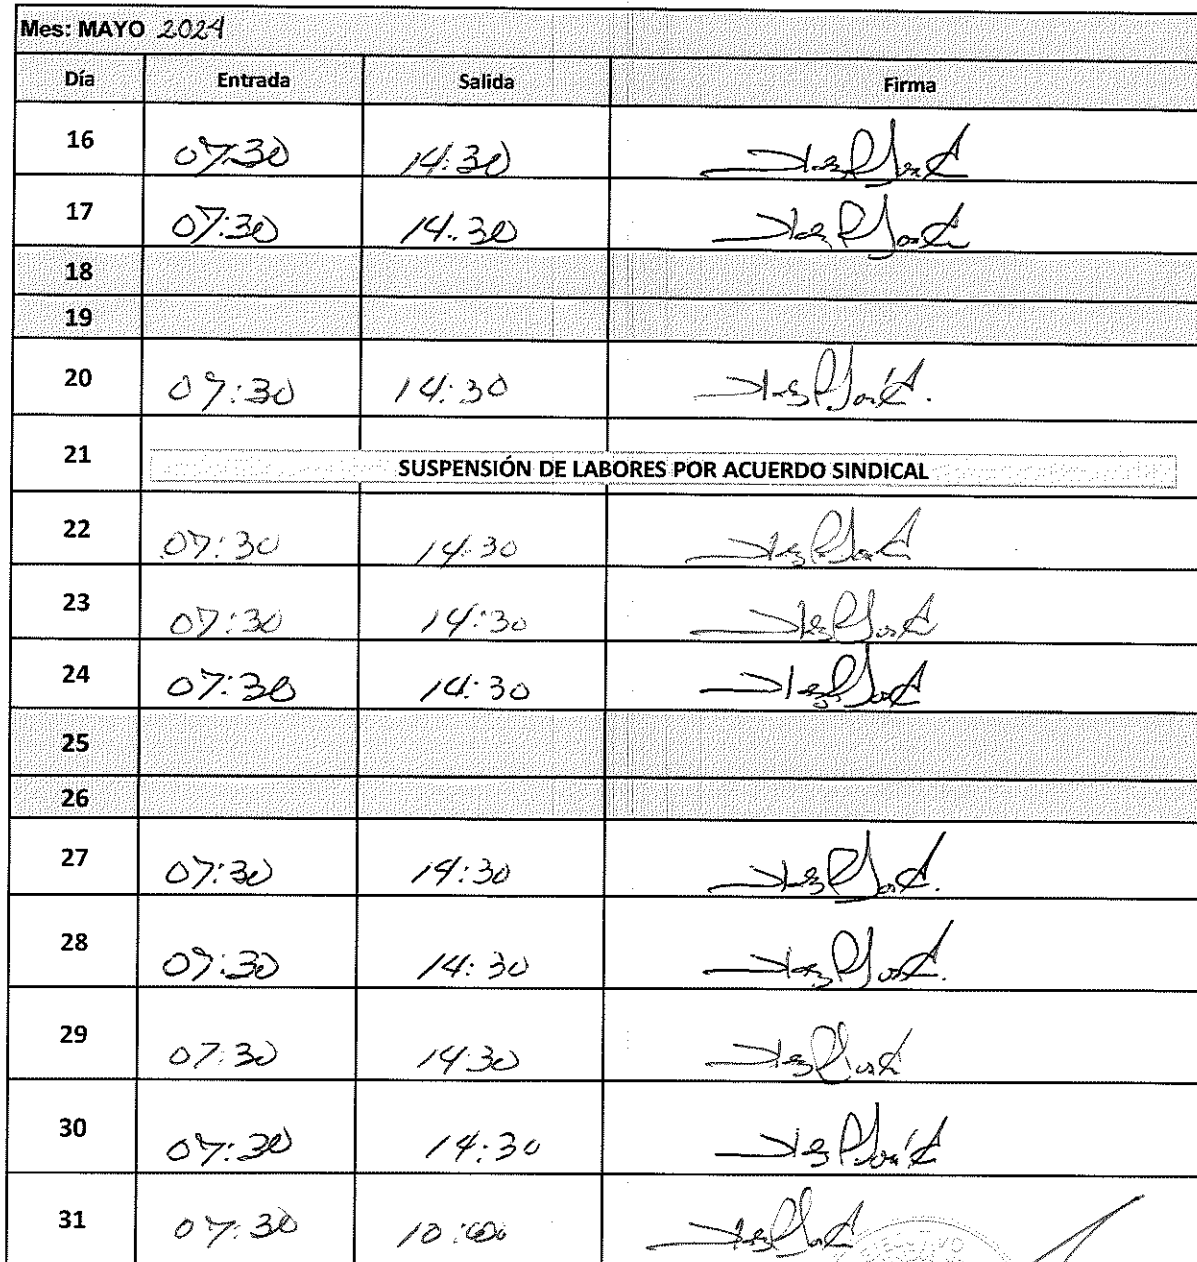 Mes: MAYO 2024
Día Entrada Salida Firma
16 07:30 14:30
17 07:30 14:30
18
19
20 07:30 14:30
21 SUSPENSIÓN DE LABORES POR ACUERDO SINDICAL
22 07:30 14:30
23 07:30 14:30
24 07:30 14:30
25
26
27 07:30 14:30
28 07:30 14:30
29 07:30 14:30
30 07:30 14:30
31 07:30 10:00